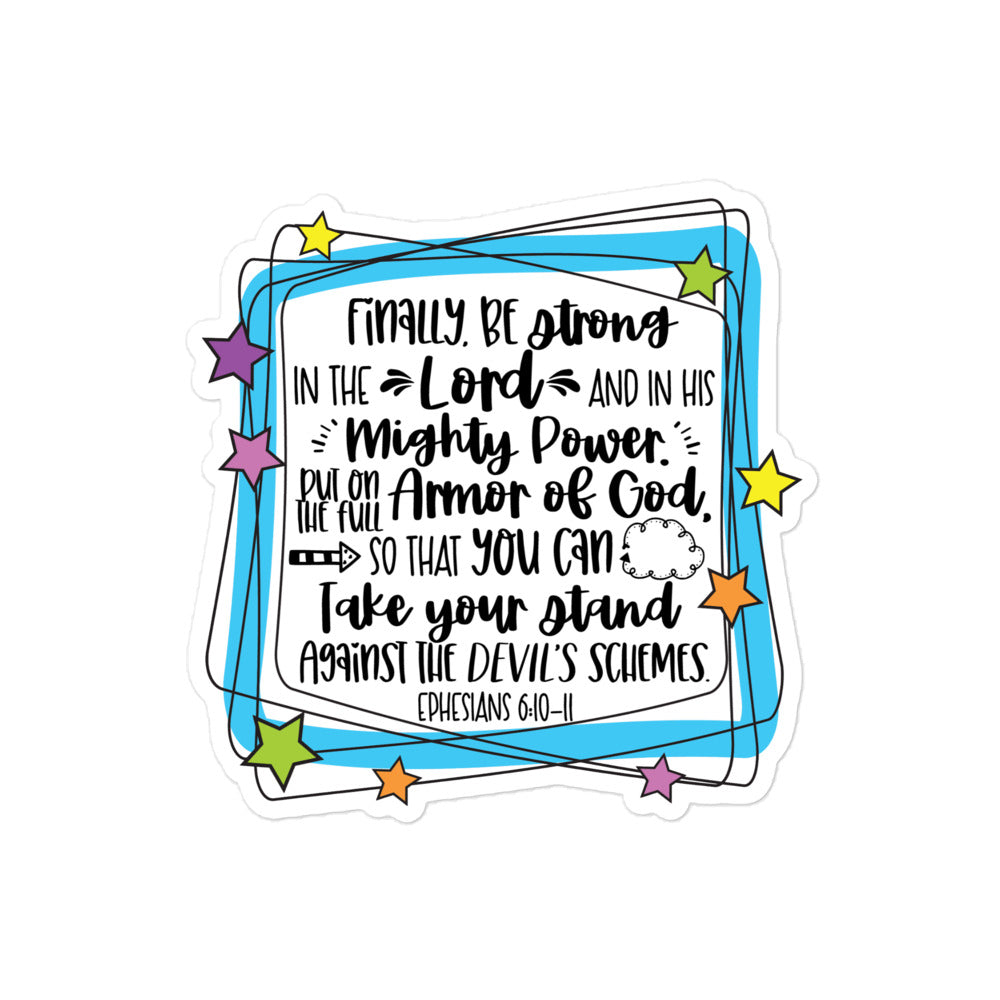 Finally, BE strong
IN THE Lord AND IN HIS
Mighty Power.
PUT ON THE FULL Armor of God,
SO THAT YOU CAN
Take your stand
AGAINST THE DEVIL'S SCHEMES.
EPHESIANS 6:10-11